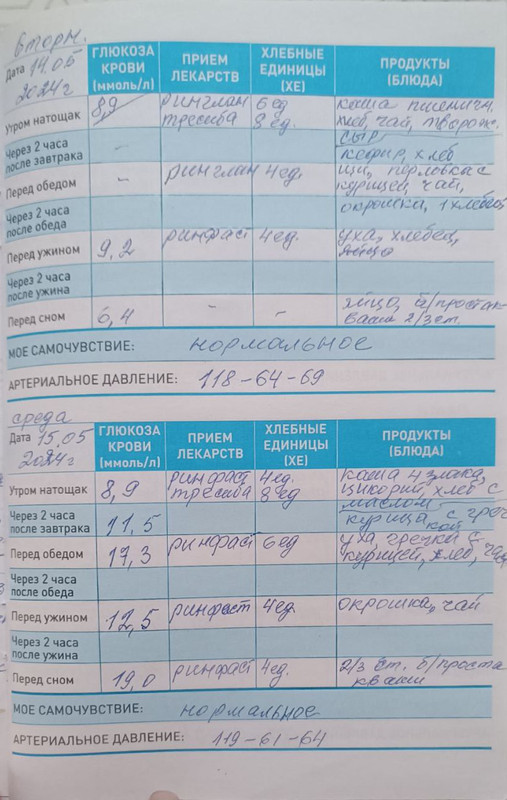 Вторн.
Дата 14.05
2024г
ГЛЮКОЗА КРОВИ (ммоль/л)
ПРИЕМ ЛЕКАРСТВ
ХЛЕБНЫЕ ЕДИНИЦЫ (ХЕ)
ПРОДУКТЫ (БЛЮДА)
Утром натощак 8,9 ринглан 6 ед каша пшеничн.
тресиба 8 ед. хлеб, чай, творож.
сыр
Через 2 часа после завтрака – кефир, хлеб
Перед обедом – ринглан 4ед. щи, перловка с
курицей, чай,
Через 2 часа после обеда окрошка, 1 хлебец
Перед ужином 9,2 ринфаст 4ед. уха, хлебец,
Через 2 часа после ужина
Перед сном 6,4 – – яйцо, б/простак-
ваши 2/3 ст.
МОЕ САМОЧУВСТВИЕ: нормальное
АРТЕРИАЛЬНОЕ ДАВЛЕНИЕ: 118-64-69
среда
Дата 15.05
2024г
ГЛЮКОЗА КРОВИ (ммоль/л)
ПРИЕМ ЛЕКАРСТВ
ХЛЕБНЫЕ ЕДИНИЦЫ (ХЕ)
ПРОДУКТЫ (БЛЮДА)
Утром натощак 8,9 ринфаст 4ед. каша 4 злака,
тресиба 8 ед цикорий, хлеб с
маслом
Через 2 часа после завтрака 11,5 курица с греч
кой
Перед обедом 17,3 ринфаст 6ед уха, гречка с
курицей, хлеб, чай
Через 2 часа после обеда
Перед ужином 12,5 ринфаст 4ед. окрошка, чай
Через 2 часа после ужина
Перед сном 19,0 ринфаст 4ед. 2/3 ст. б/проста
кваши
МОЕ САМОЧУВСТВИЕ: нормальное
АРТЕРИАЛЬНОЕ ДАВЛЕНИЕ: 119-61-64